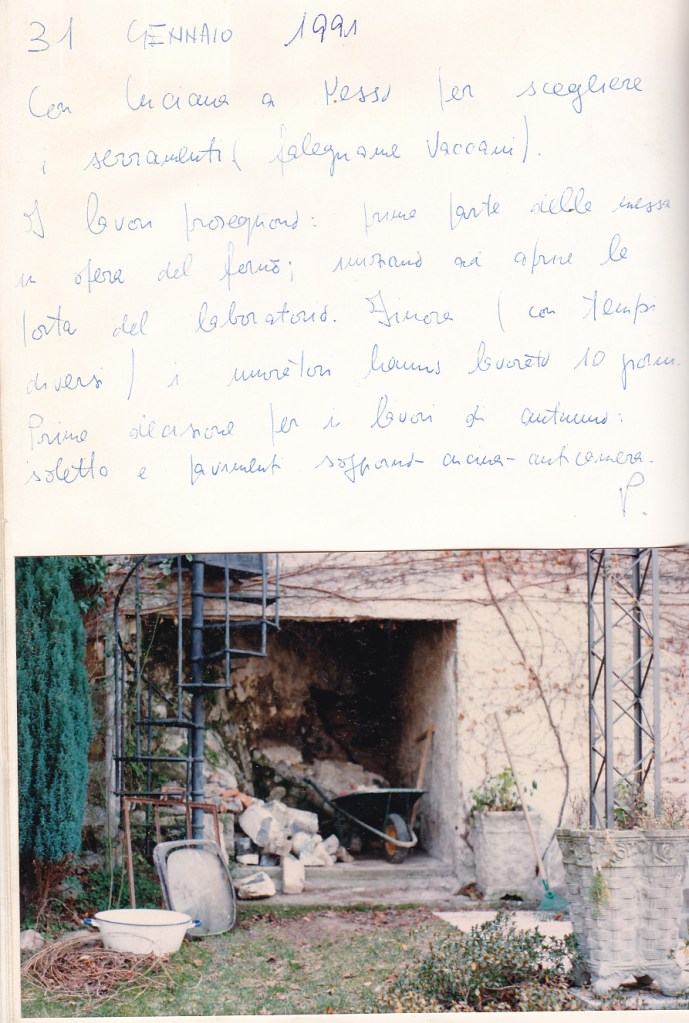 31 GENNAIO 1991
Con Luciana a Messo per scegliere
i serramenti (falegname Vaccani).
I lavori proseguono: prima parte della messa
in opera del forno; iniziano ad aprire la
porta del laboratorio. Finora (con tempi
diversi) i muratori hanno lavorato 10 giorni.
Prime decisione per i lavori di autunno:
soletta e pavimenti soggiorno-cucina-anticamera.
P.